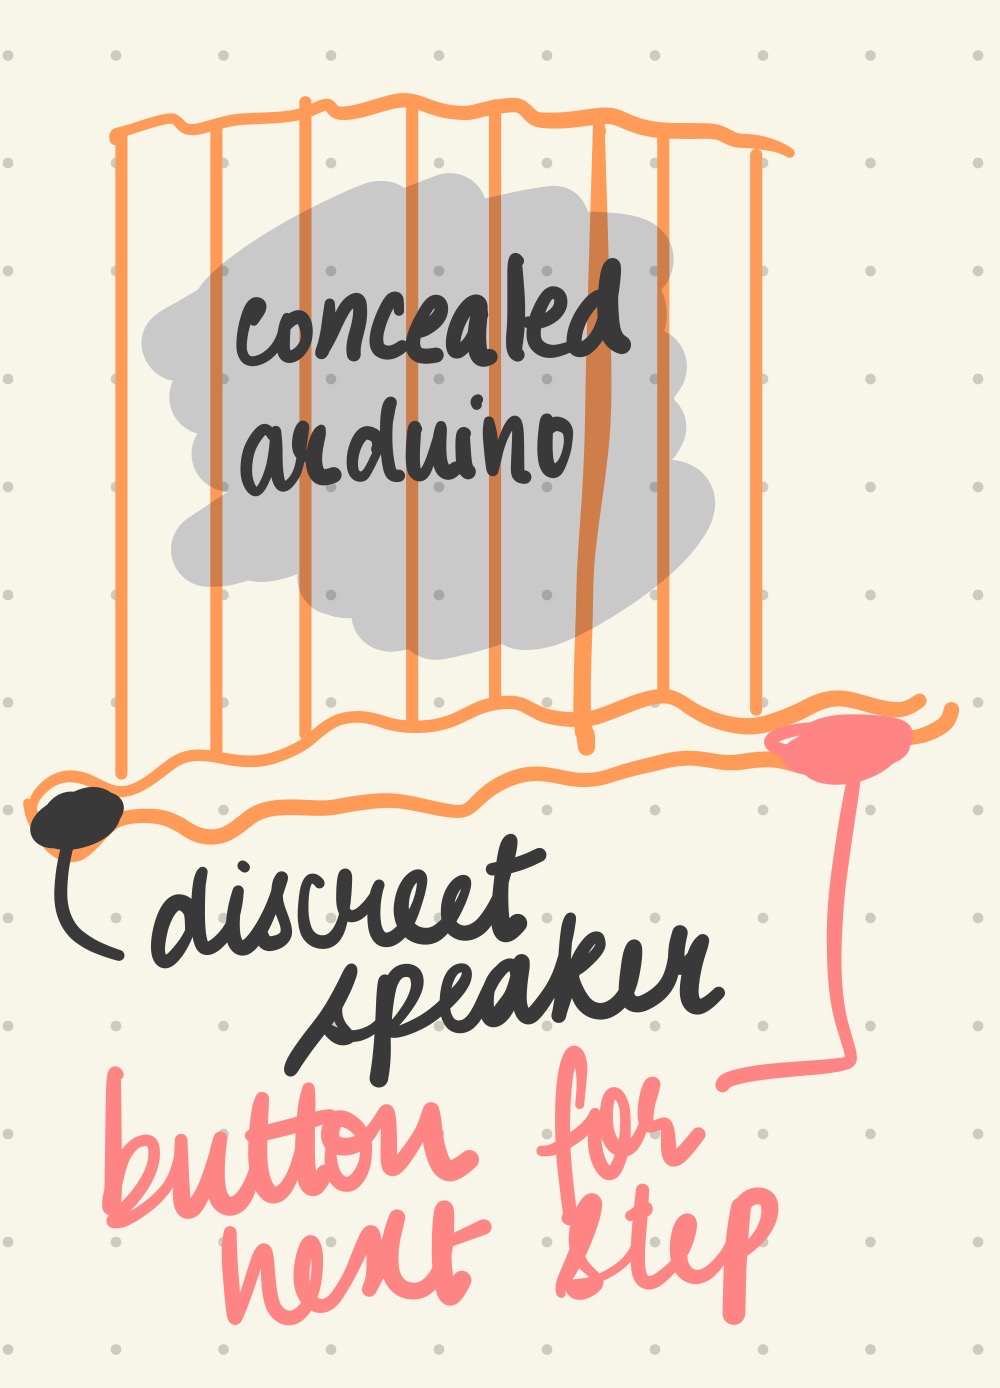 concealed
arduino
discreet
speaker
button for
next step